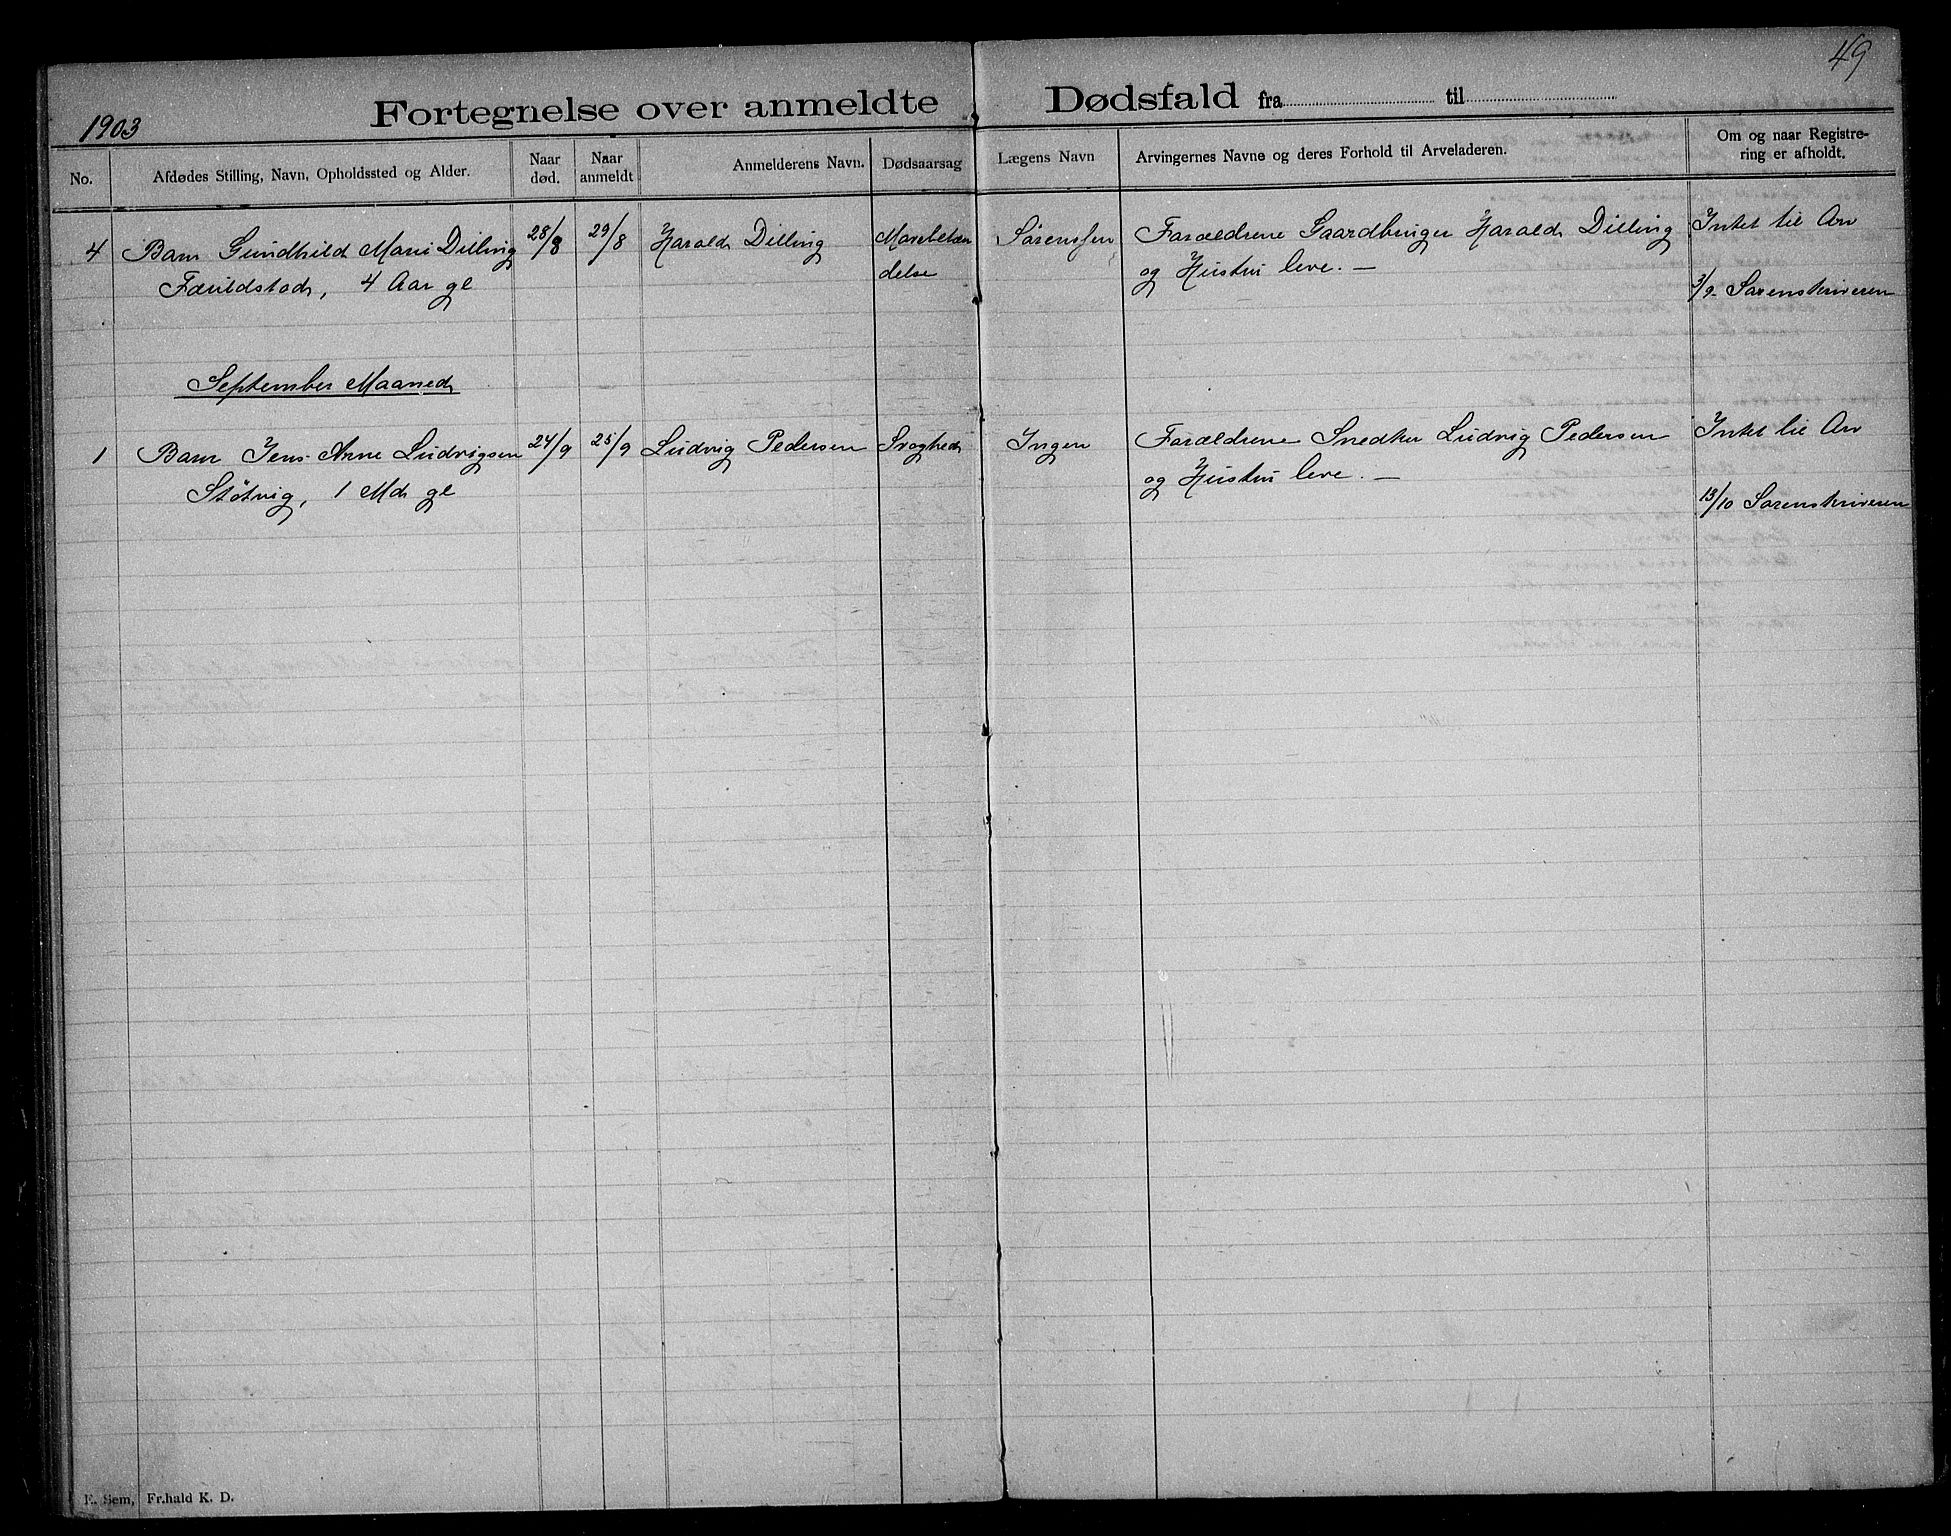 49
1903 Fortegnelse over anmeldte Dødsfald fra til
No. Afdødes Stilling, Navn, Opholdssted og Alder. Naar død. Naar anmeldt Anmelderens Navn. Dødsaarsag Lægens Navn Arvingernes Navne og deres Forhold til Arveladeren. Om og naar Registrering er afholdt.
4 Barn Gundhild Marie Dilling 28/8 29/8 Harald Dilling Mavebetæn Sørenssen Forældrene Gaardbruger Harald Dilling Intet til Arv
Farildstad, 4 Aar gl delse og Hustru leve. —
3/9 Sorenskriveren
September Maaned
1 Barn Jens Arne Ludvigsen 24/9 25/9 Ludvig Pedersen Svaghed Ingen Forældrene Snedker Ludvig Pedersen Intet til Arv
Støtvig, 1 Md gl og Hustru leve. —
13/10 Sorenskriveren
E. Sem, Fr.hald K. D.